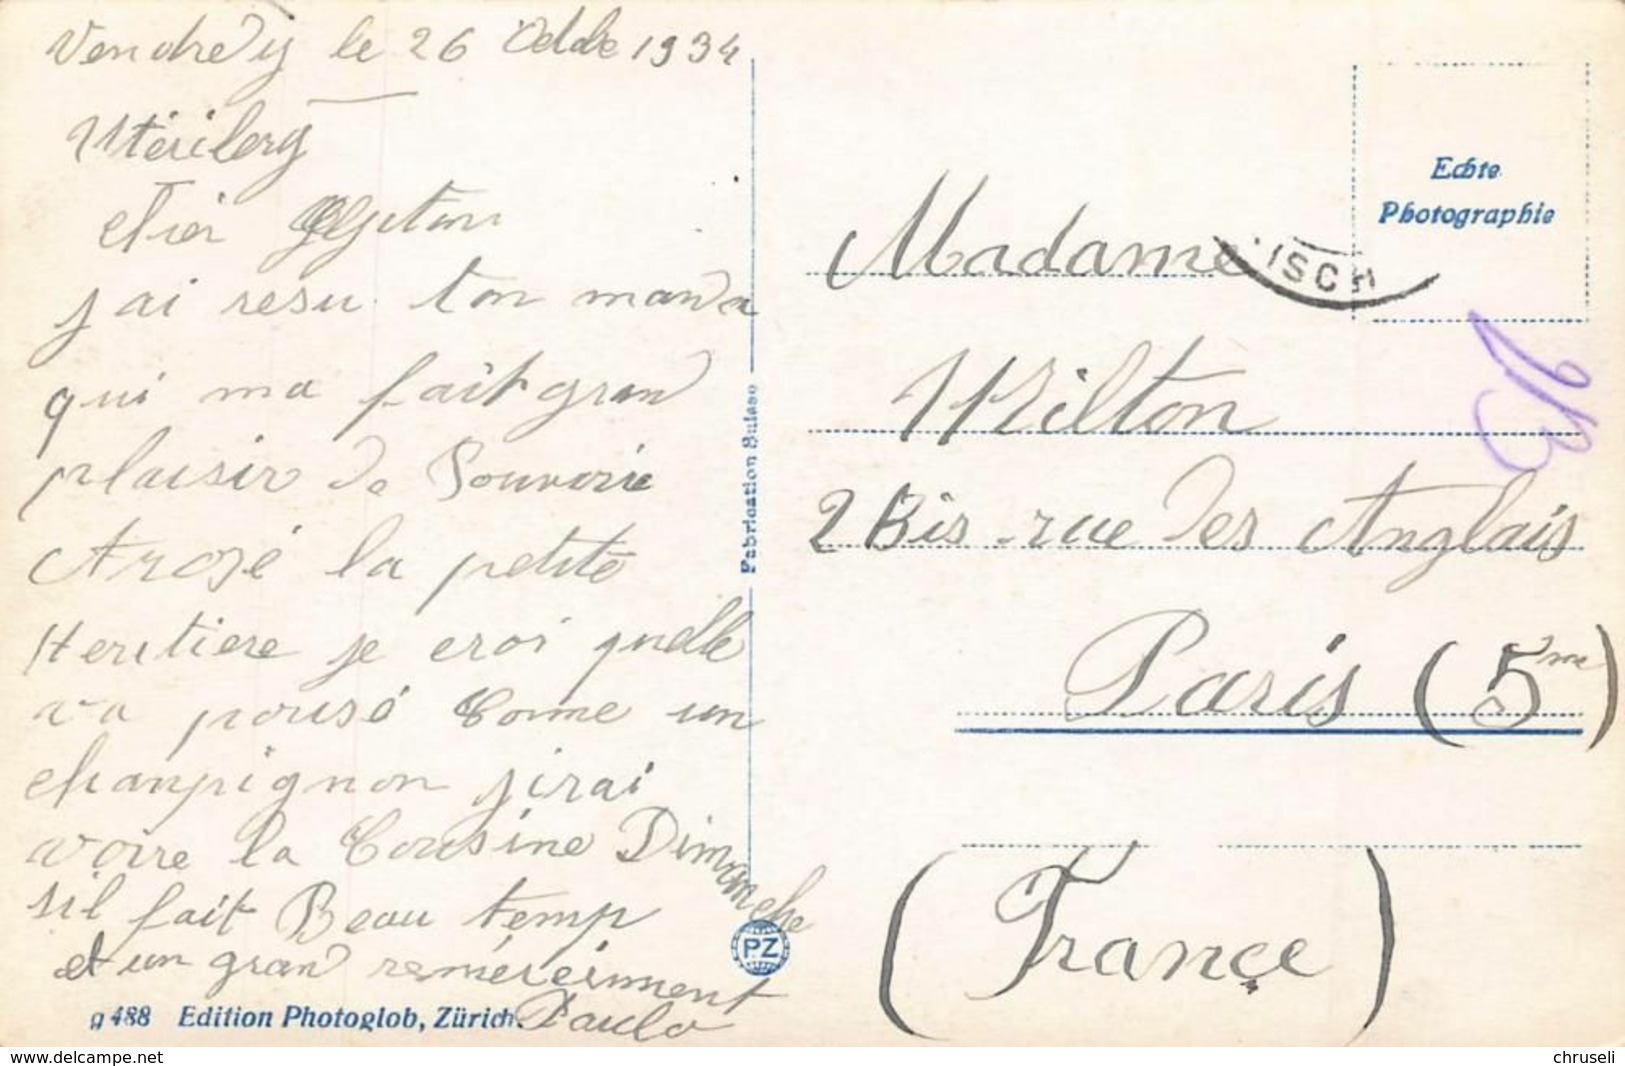 Vendredy le 26 Octobre 1934
cher
j'ai resu ton manda
qui ma fait grand
plaisir de Souvoir
Arosé la petite
Heritiere je croi quelle
va pousé Come un
chanpignon j'irai
voire la Cousine Dimmenche
sil fait Beau temp
et un grand remerciment
Paulo
g 488 Edition Photoglob, Zürich.
Fabrication Suisse
PZ
Echte
Photographie
ISCH
Madame
Milton
2 Bis rue des Anglais
Paris (5me)
(France)
www.delcampe.net
chruseli